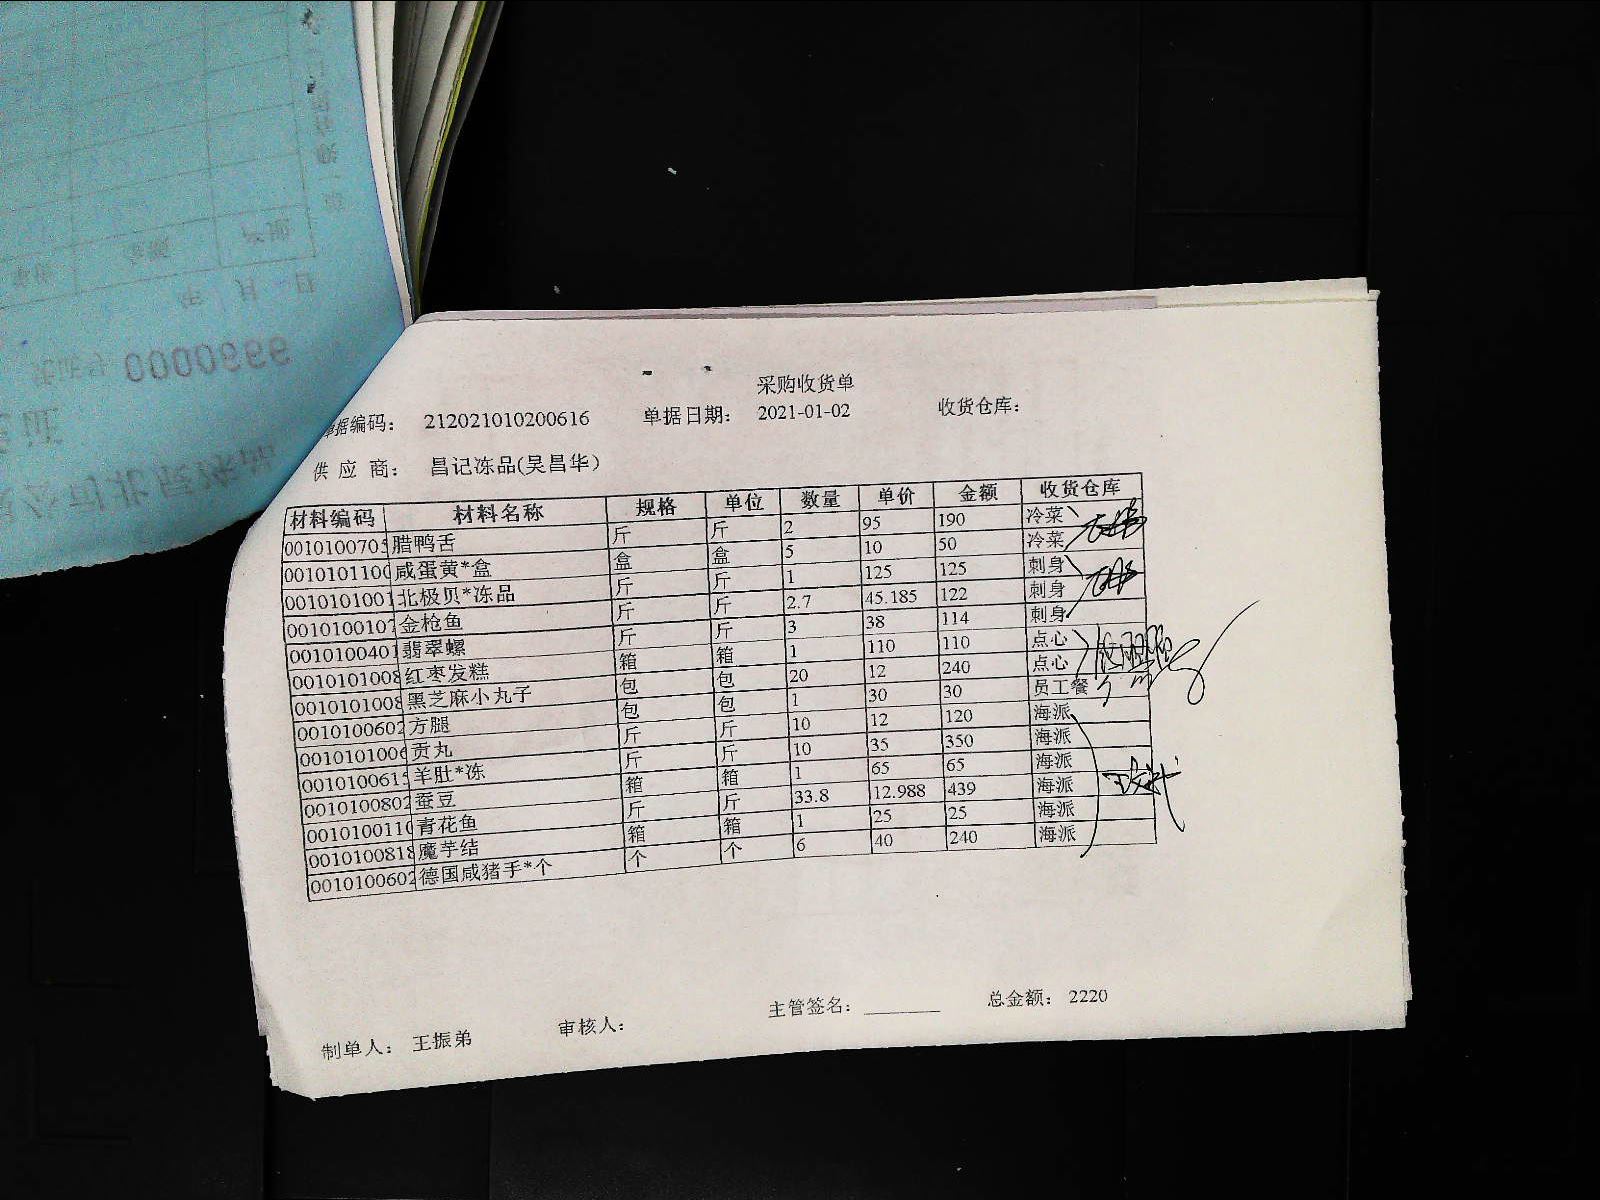 采购收货单
单据编码： 212021010200616 单据日期： 2021-01-02 收货仓库：
供 应 商： 昌记冻品(吴昌华)
材料编码 材料名称 规格 单位 数量 单价 金额 收货仓库
0010100705 腊鸭舌 斤 斤 2 95 190 冷菜
0010101100 咸蛋黄*盒 盒 盒 5 10 50 冷菜
0010101001 北极贝*冻品 斤 斤 1 125 125 刺身
0010100107 金枪鱼 斤 斤 2.7 45.185 122 刺身
0010100401 翡翠螺 斤 斤 3 38 114 刺身
0010101008 红枣发糕 箱 箱 1 110 110 点心
0010101008 黑芝麻小丸子 包 包 20 12 240 点心
0010100602 方腿 包 包 1 30 30 员工餐
0010101006 贡丸 斤 斤 10 12 120 海派
0010100615 羊肚*冻 斤 斤 10 35 350 海派
0010100802 蚕豆 箱 箱 1 65 65 海派
0010100110 青花鱼 斤 斤 33.8 12.988 439 海派
0010100818 魔芋结 箱 箱 1 25 25 海派
0010100602 德国咸猪手*个 个 个 6 40 240 海派
制单人： 王振弟 审核人： 主管签名： 总金额： 2220